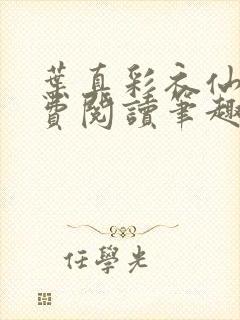 葉真彩衣仙
費閱讀筆趣
任學光